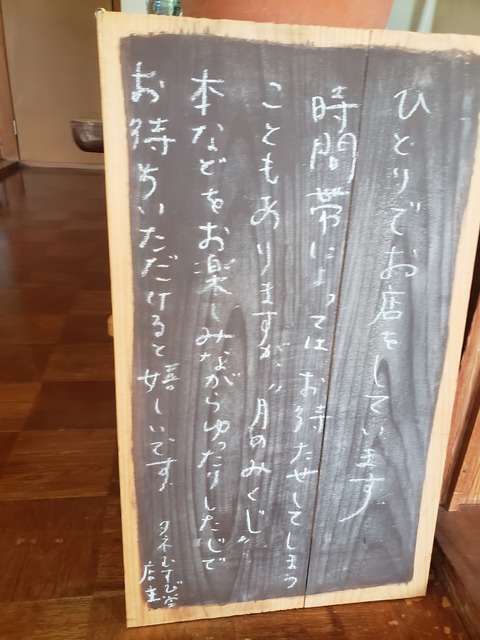 ひとりでお店をしています
時間帯によっては お待たせしてしまう
こともありますが、〝月のみくじ〟
本などをお楽しみながらゆったりした心で
お待ちいただけると嬉しいです。
タネむすび堂
店主